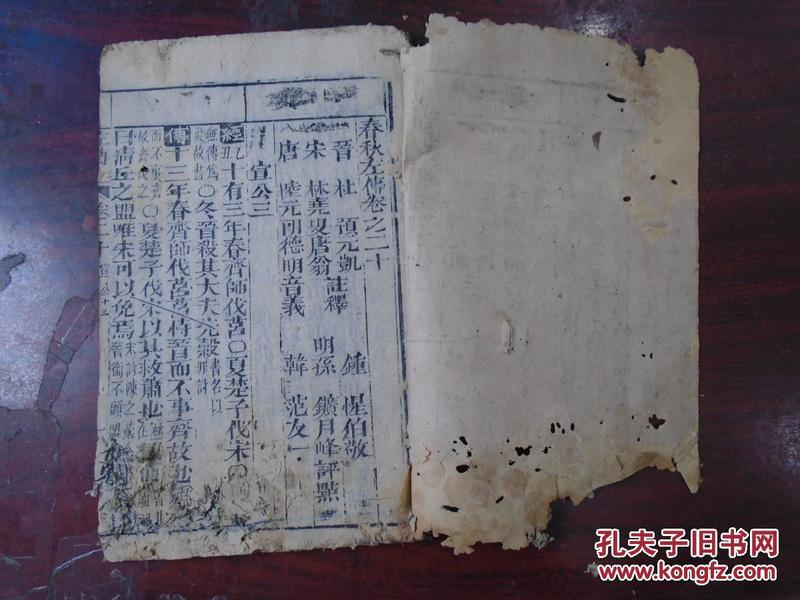 春秋左傳卷之二十
晉 杜 預元凱 註釋
宋 林堯叟唐翁
唐 陸元朗德明音義
鍾 惺伯敬
明孫 鑛月峰評點
韓 范友一
宣公三
經 乙丑 十有三年春齊師伐莒○夏楚子伐宋○
無傳為災故書○冬晉殺其大夫先縠書名以罪討
傳十三年春齊師伐莒莒恃晉而不事齊故也
○夏楚子伐宋以其救蕭也
曰清丘之盟唯宋可以免焉
孔夫子旧书网
www.kongfz.com